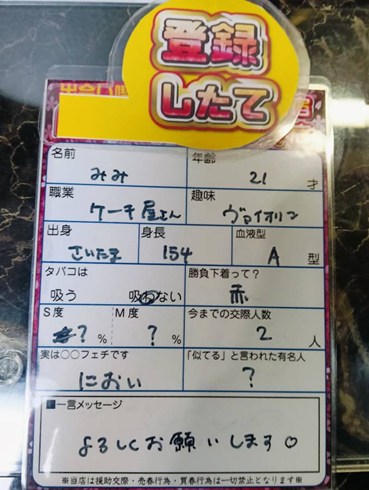 登録
したて
名前 みみ 年齢 21 才
職業 ケーキ屋さん 趣味 ヴァイオリン
出身 さいたま 身長 154 血液型 A 型
タバコは 吸う 吸わない 勝負下着って? 赤
S度 ? % M度 ? % 今までの交際人数 2 人
実は〇〇フェチです におい 「似てる」と言われた有名人 ?
■一言メッセージ
よろしくお願いします♡
※当店は援助交際・売春行為・買春行為は一切禁止となります※